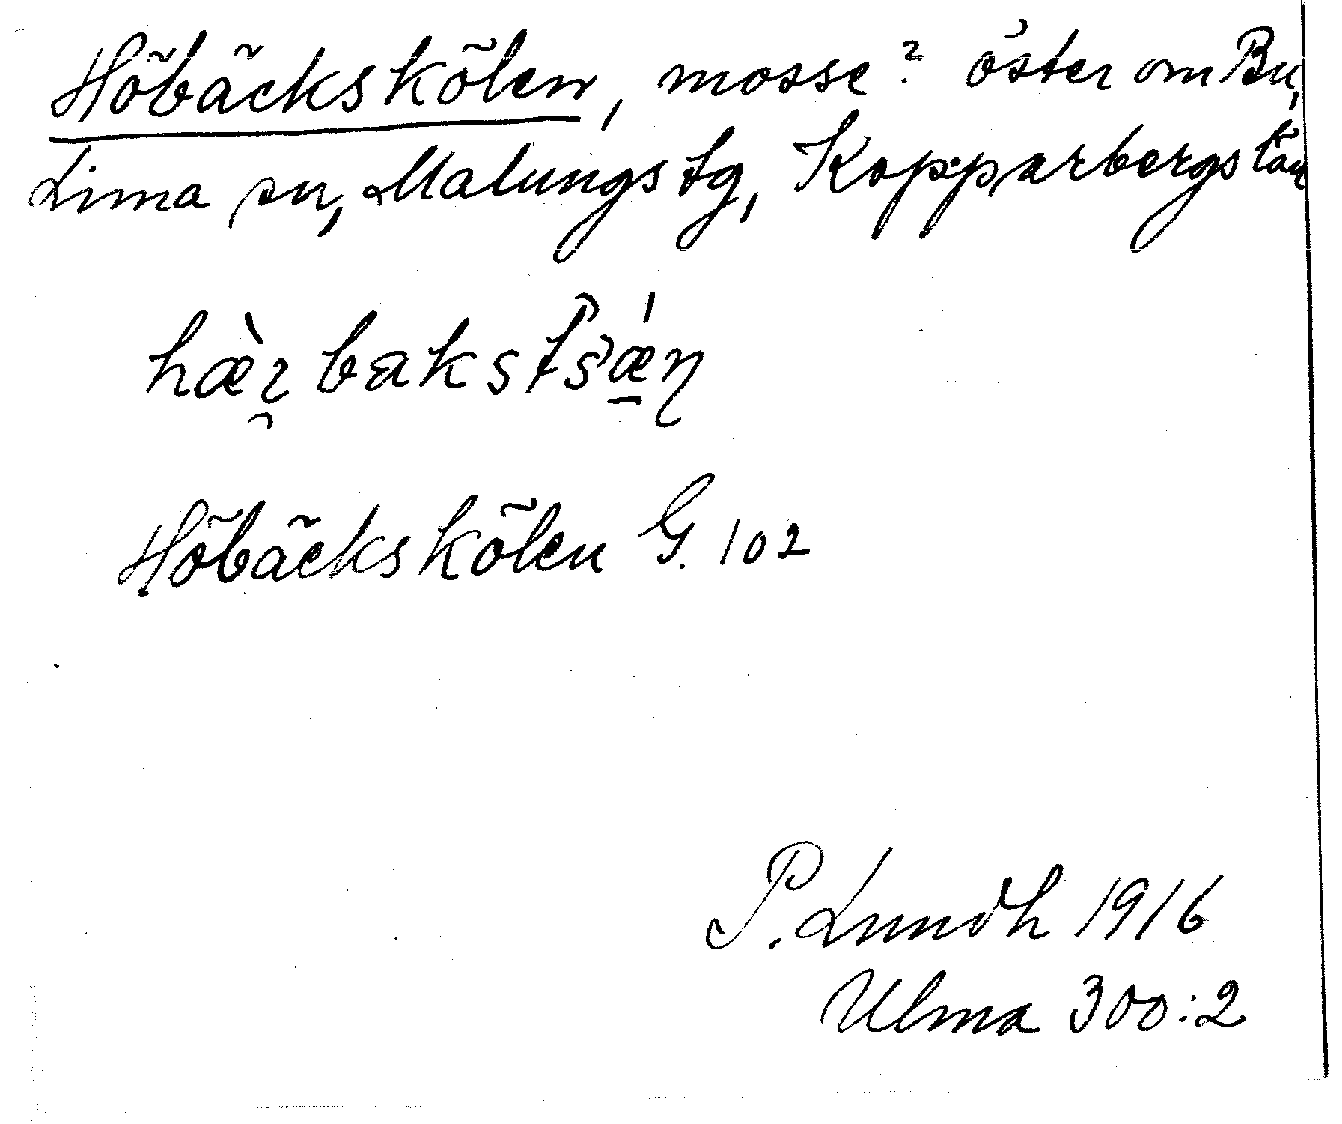 Höbäckskölen, mosse? öster om Bu,
Lima sn, Malungs tg, Kopparbergs län
Höbäckskölen G. 102
P. Lundh 1916
Ulma 300:2